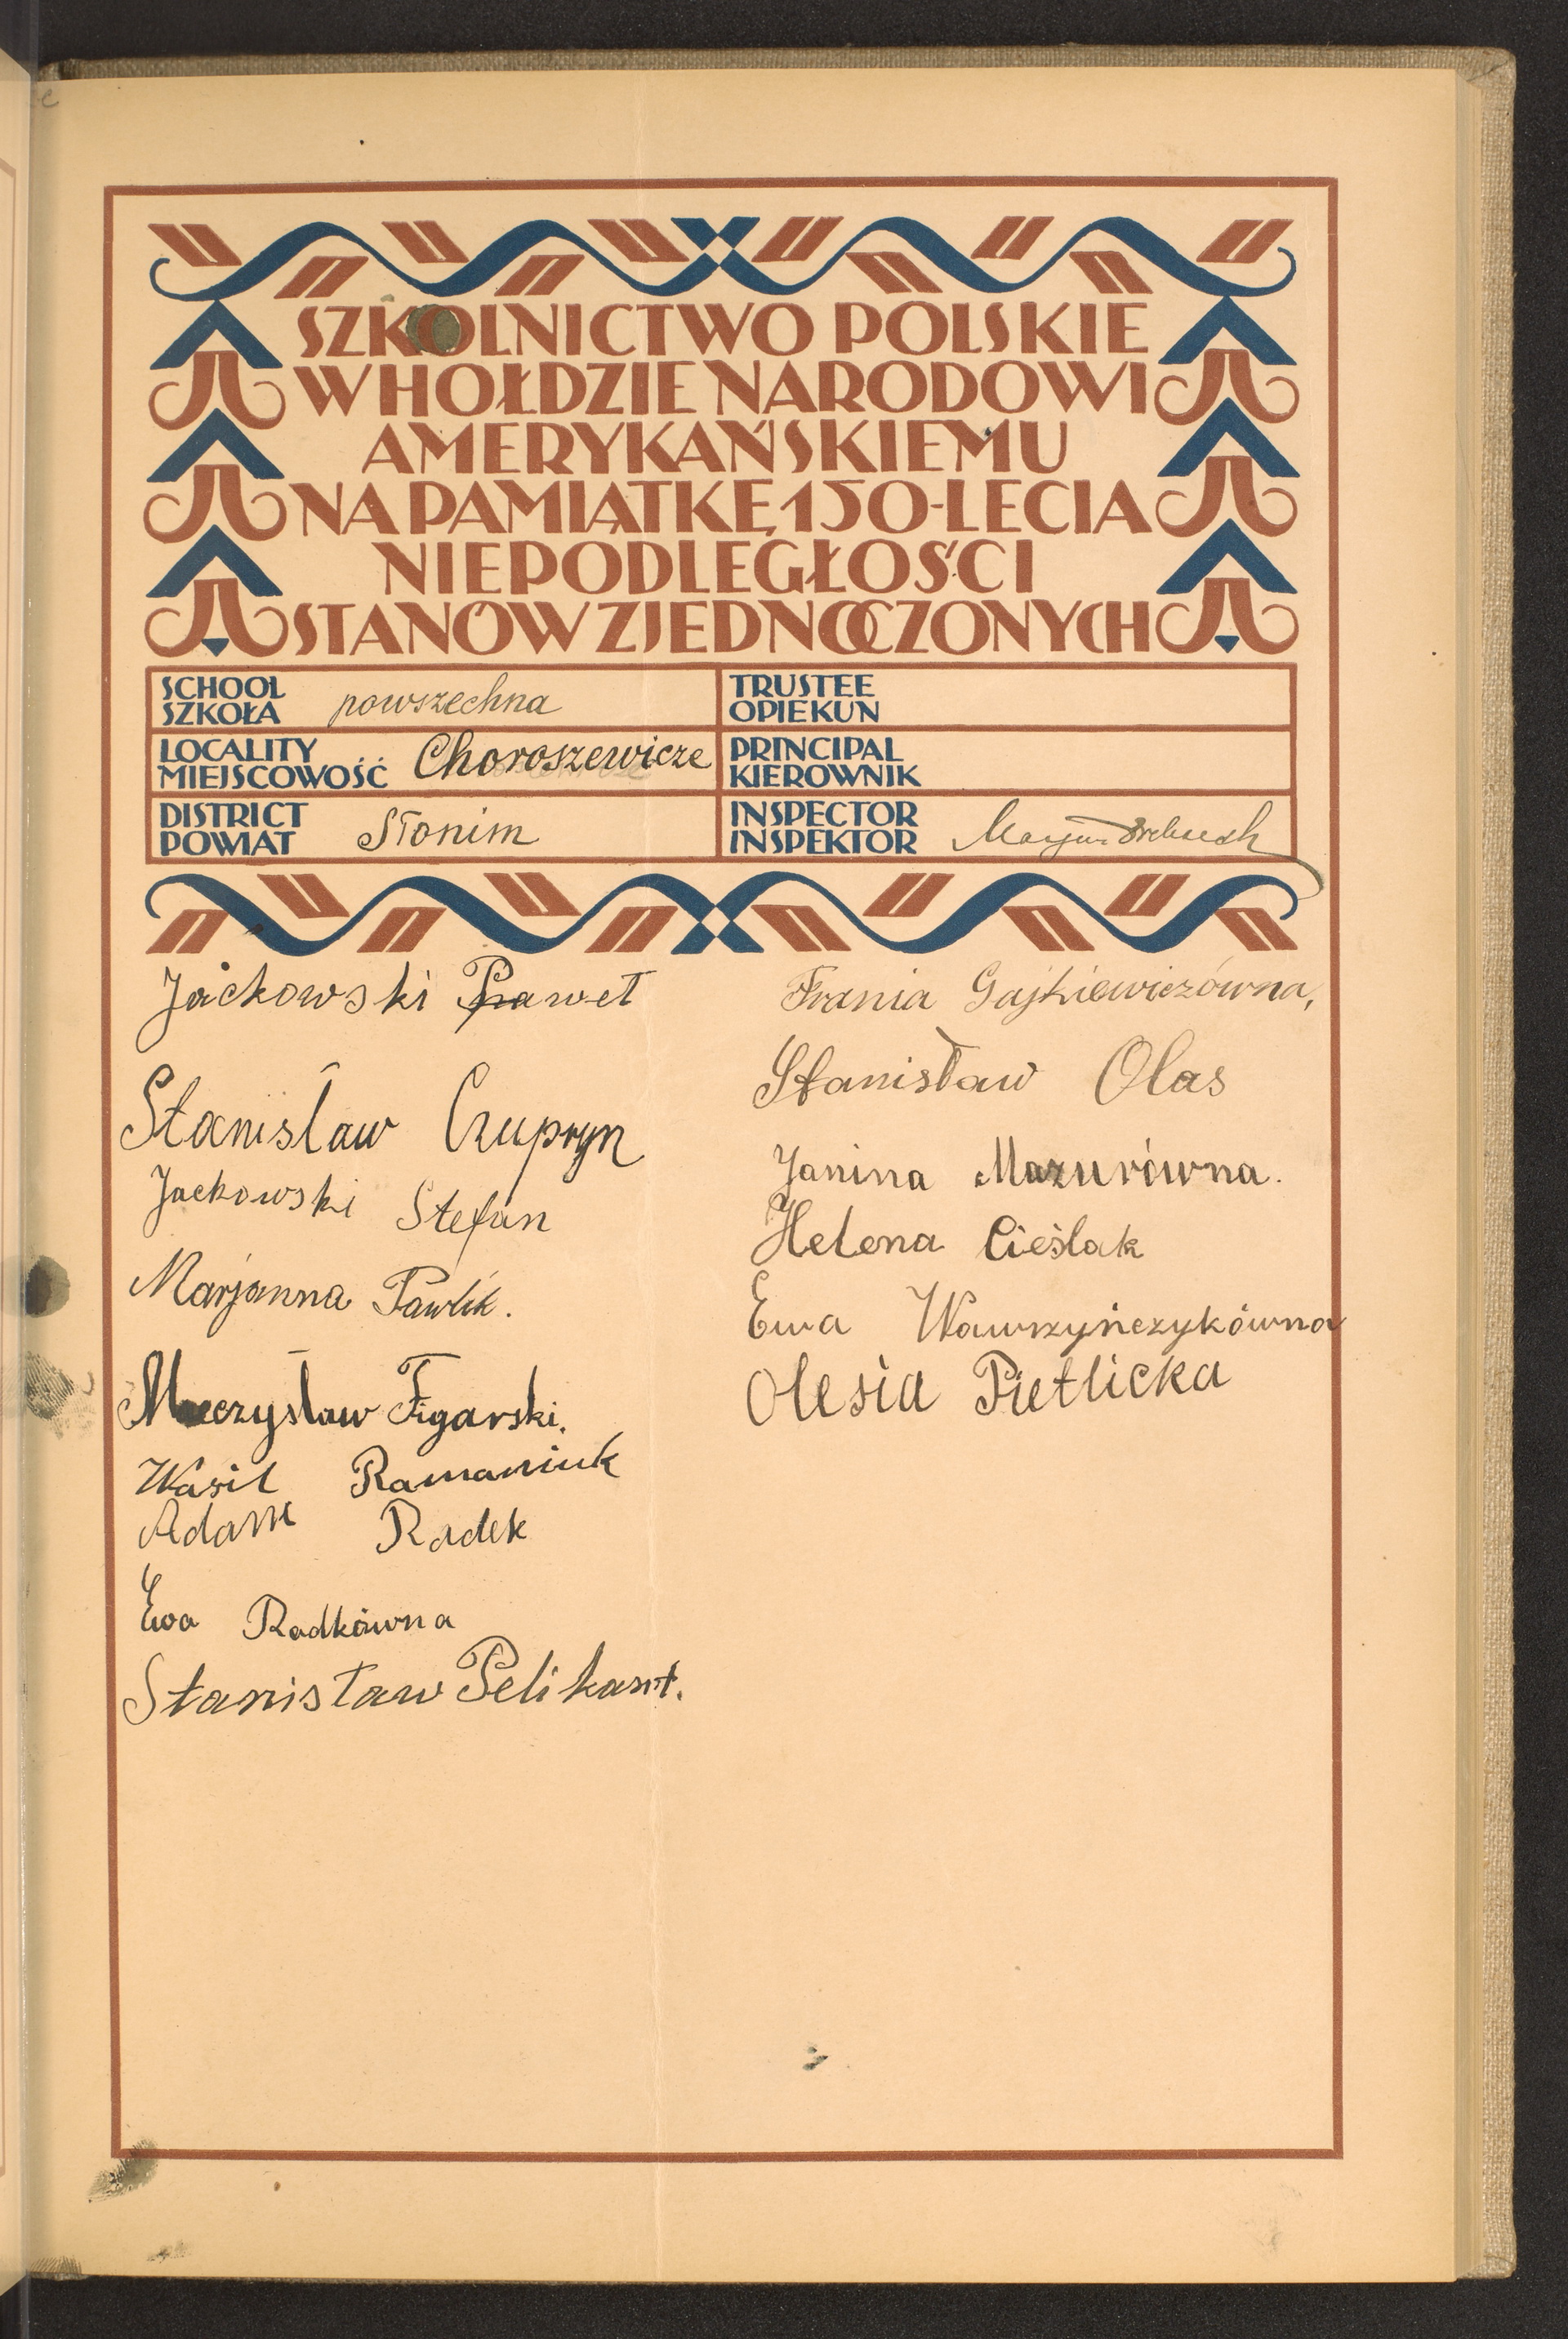 SZKOLNICTWO POLSKIE
W HOŁDZIE NARODOWI
AMERYKAŃSKIEMU
NA PAMIĄTKĘ 150-LECIA
NIEPODLEGŁOŚCI
STANÓW ZJEDNOCZONYCH
SCHOOL
SZKOŁA powszechna
LOCALITY
MIEJSCOWOŚĆ Choroszewicze
DISTRICT
POWIAT Słonim
TRUSTEE
OPIEKUN
PRINCIPAL
KIEROWNIK
INSPECTOR
INSPEKTOR
Jackowski Paweł
Stanisław Czupryn
Jackowski Stefan
Marjanna Pawlik.
Mieczysław Figarski.
Wasil Ramaniuk
Adam Radek
Ewa Radkówna
Stanisław Pelikant.
Frania Gajkiewiczówna,
Stanisław Olas
Janina Mazurówna.
Helena Cieślak
Ewa Wawrzyńczykówna
Olesia Pietlicka